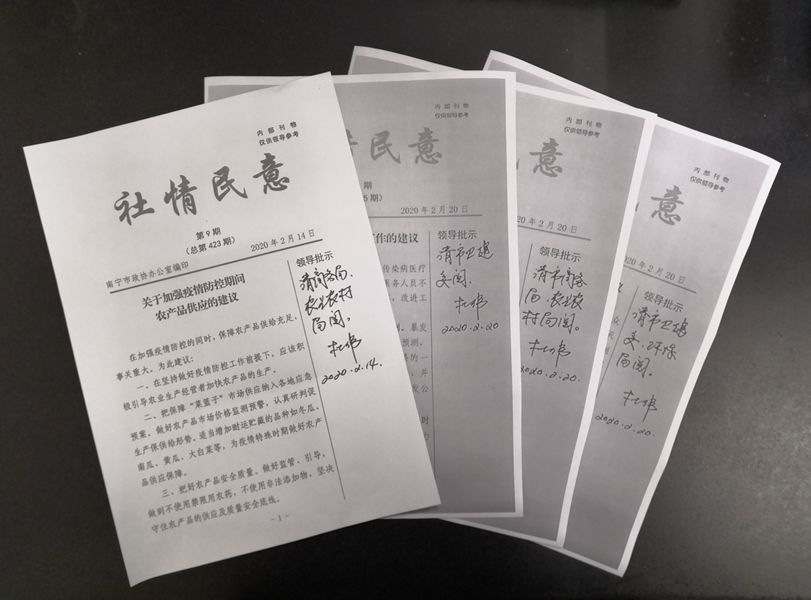 内部刊物
仅供领导参考
社情民意
第9期
（总第423期）
南宁市政协办公室编印
2020年2月14日
关于加强疫情防控期间
农产品供应的建议
在加强疫情防控的同时，保障农产品供给充足，
事关重大。为此建议：
一、在坚持做好疫情防控工作前提下，应该积
极引导农业生产经营者加快农产品的生产。
二、把保障“菜篮子”市场供应纳入各地应急
预案，做好农产品市场价格监测预警，认真研判促
生产保供给形势，适当增加耐运贮藏的品种如冬瓜、
南瓜、黄瓜、大白菜等，为疫情特殊时期做好农产
品供应保障。
三、把好农产品安全质量。做好监管、引导，
做到不使用禁限用农药，不使用非法添加物，坚决
守住农产品的供应及质量安全底线。
- 1 -
领导批示
请商务局、
农业农村
局阅。
杜伟
2020.2.14.
内部刊物
仅供领导参考
民意
期
5期）
2020年2月20日
作的建议
传染病医疗
医务人员不
，改进工
领导批示
请市卫健
委阅
杜伟
2020.2.20
内部刊物
仅供领导参考
意
2020年2月20日
领导批示
请市商务
局、农业农
村局阅。
杜伟
2020.2.20.
内部刊物
仅供领导参考
意
2020年2月20日
领导批示
请市卫健
委、环保
局阅.
杜伟
2020.2.20.